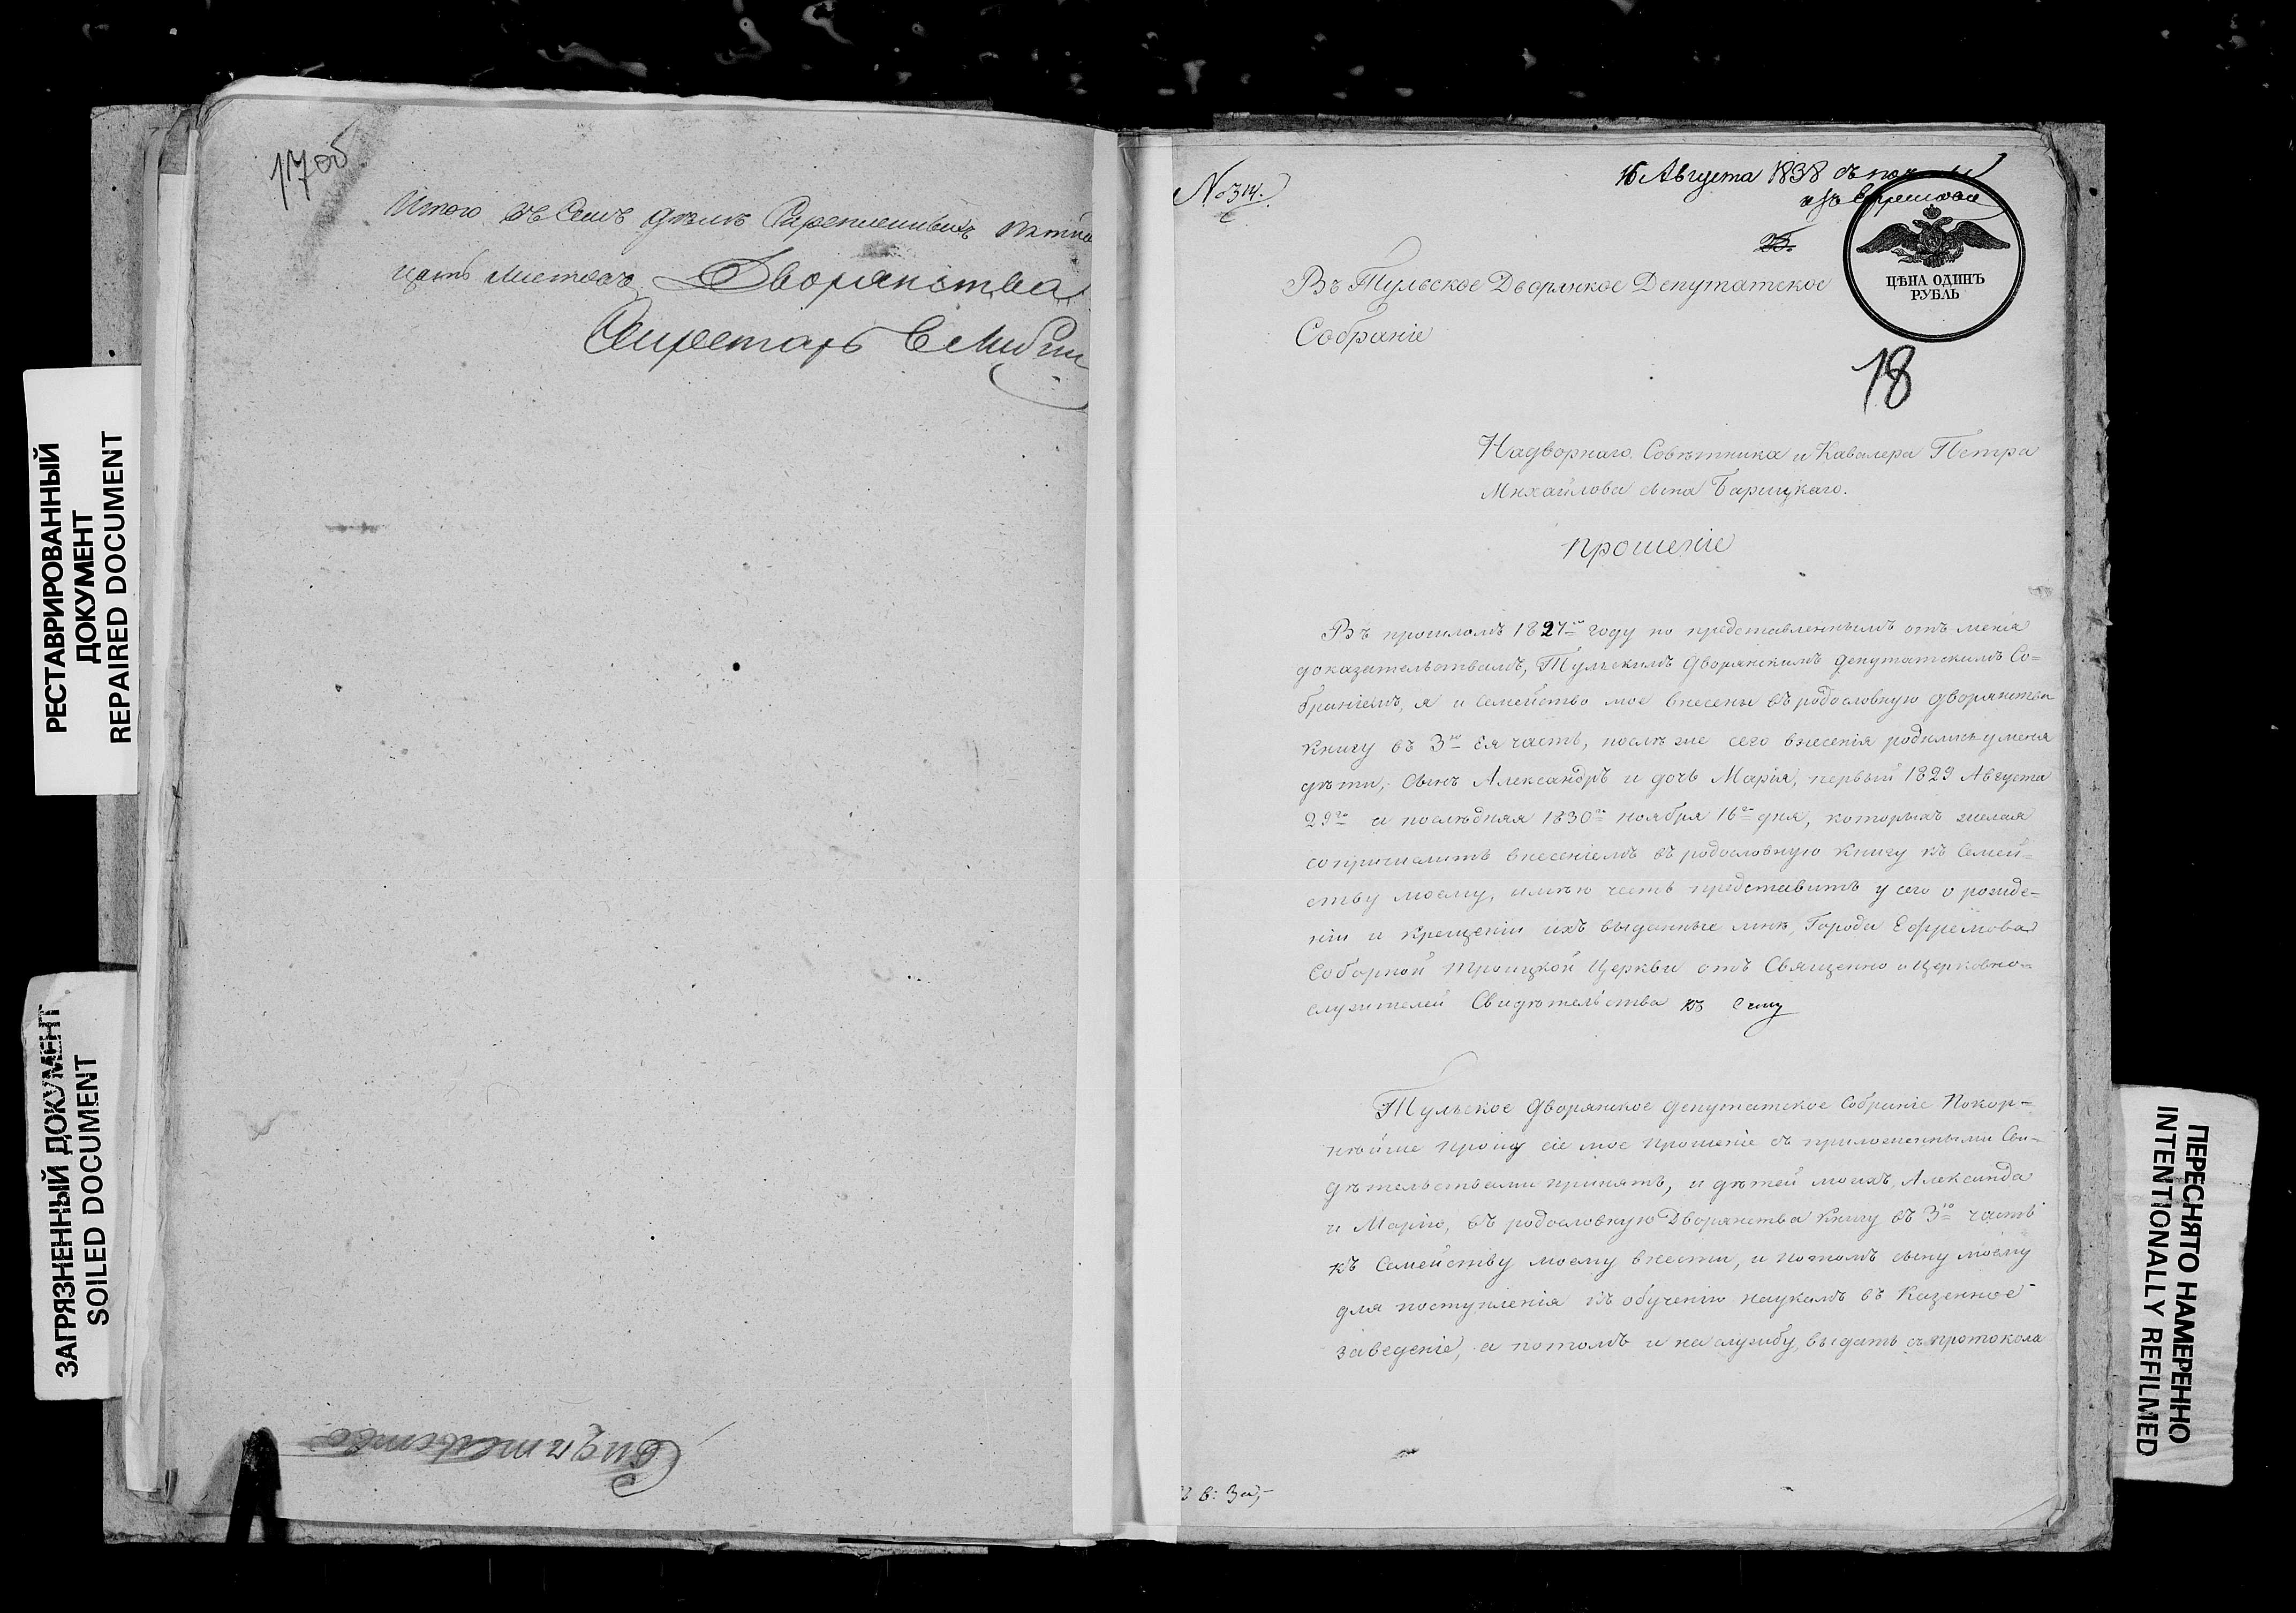 17 об
Итого въ семъ дѣлѣ скрепленныхъ пятнад
цать листовъ Дворянства
Секретарь
Свидѣтельство
№ 314.
16 Августа 1838 съ поч
изъ Ефремова
25.
ЦѢНА ОДИНЪ
РУБЛЬ
18
Въ Тульское Дворянское Депутатское
Собраніе
Надворнаго Совѣтника и Кавалера Петра
Михайлова сына Барицкаго.
Прошеніе
Въ прошломъ 1827го году по представленнымъ отъ меня
доказательствамъ, Тульскимъ Дворянскимъ Депутатскимъ Со=
браніемъ, я и семейство мое внесены въ родословную дворянства
книгу въ 3ю Ея часть, послѣ же сего внесенія родились у меня
дѣти, сынъ Александръ и дочь Марія, первый 1829 Августа
29го а послѣдняя 1830го ноября 16го дня, которыхъ желая
сопричислить внесеніемъ въ родословную книгу къ Семей=
ству моему, имѣю честь представить у сего о рожде=
ніи и крещеніи ихъ выданные мнѣ, Города Ефремова
Соборной Троицкой Церкви отъ Священно и Церковно=
служителей Свидѣтельства къ сему
Тульское Дворянское Депутатское Собраніе Покор=
нѣйше прошу сіе мое прошеніе съ приложенными Сви=
дѣтельствами принять, и дѣтей моихъ, Александа
и Марію, въ родословную Дворянства Книгу въ 3ю часть
къ Семейству моему внести, и потомъ сыну моему
для поступленія къ обученію наукамъ въ Казенное
заведеніе, а потомъ и на службу, выдать съ протокола
РЕСТАВРИРОВАННЫЙ
ДОКУМЕНТ
REPAIRED DOCUMENT
ЗАГРЯЗНЕННЫЙ ДОКУМЕНТ
SOILED DOCUMENT
ПЕРЕСНЯТО НАМЕРЕННО
INTENTIONALLY REFILMED